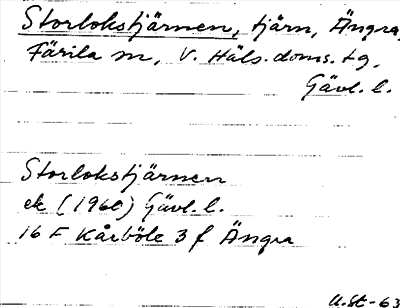 Storlokstjärnen, tjärn, Ängra,
Färila sn, V. Häls. doms. tg,
Gävl. l.
Storlokstjärnen
ek (1960) Gävl. l.
16 F Kårböle 3 f Ängra
U.St-63